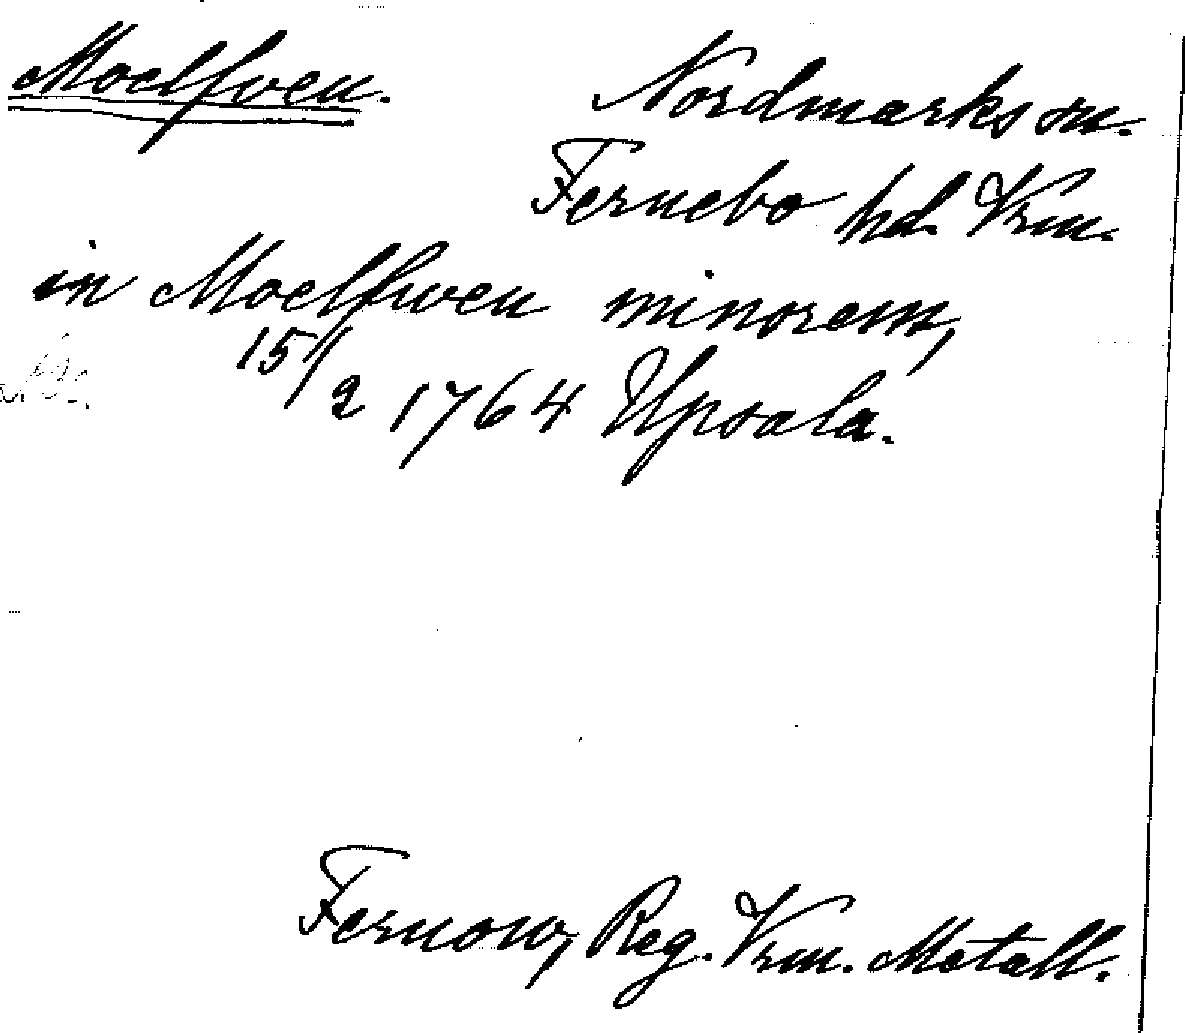 Moelfven. Nordmarks sn.
Fernebo hd. Vrm.
in Moelfwen minorem,
15/2 1764 Upsala.
Fernow, Reg. Vrm. Metall.